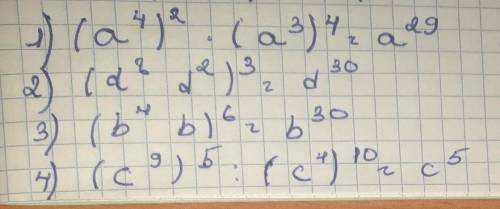 1) (a⁴)² · (a³)⁴ = a²⁹
2) (d⁸ d²)³ = d³⁰
3) (b⁴ b)⁶ = b³⁰
4) (c⁹)⁵ : (c⁴)¹⁰ = c⁵